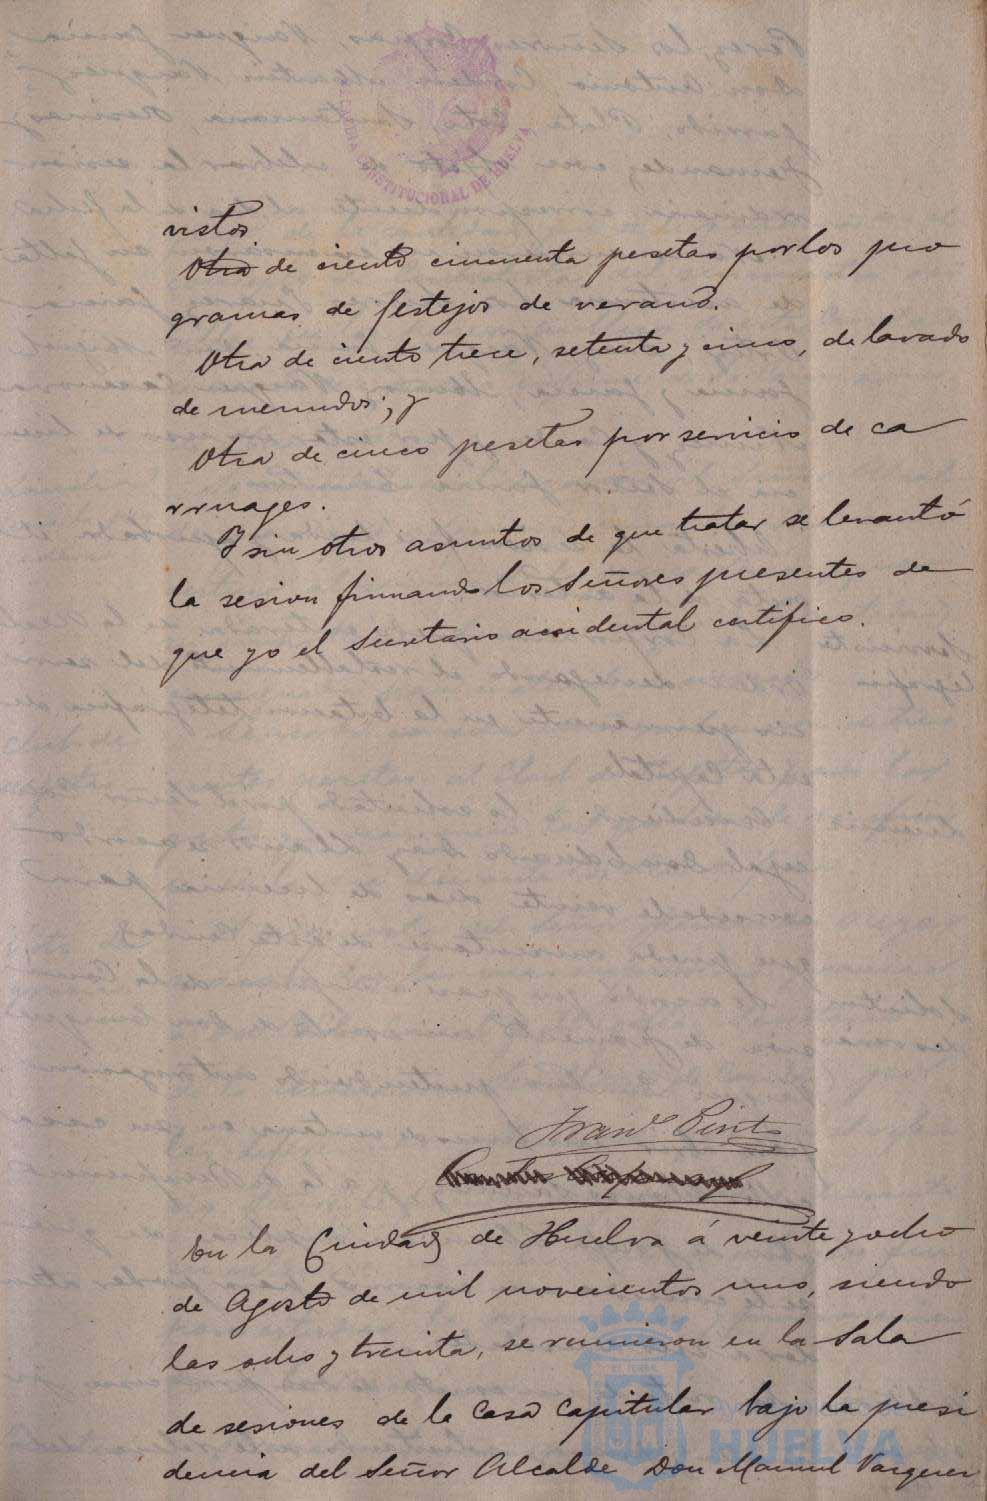 CONSTITUCIONAL DE HUELVA
vistos
Otra de ciento cincuenta pesetas por los pro
gramas de festejos de verano.
Otra de ciento trece, setenta y cinco, de lavado
de menudos; y
Otra de cinco pesetas por servicio de ca
rruages.
Y sin otros asuntos de que tratar se levantó
la sesion firmando los Señores presentes de
que yo el Secretario accidental certifico.
En la Ciudad de Huelva á veinte y ocho
de Agosto de mil novecientos uno, siendo
las ocho y treinta, se reunieron en la Sala
de sesiones de la Casa Capitular bajo la presi
dencia del Señor Alcalde Don Manuel Vazquez
HUELVA